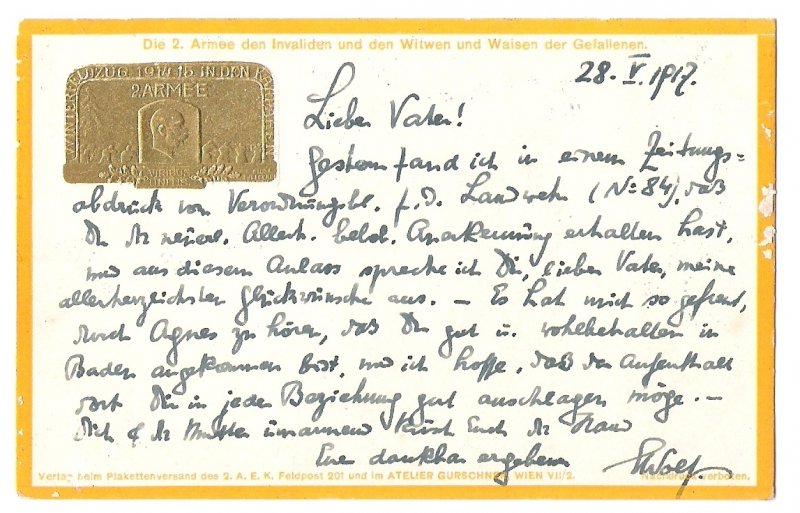 Die 2. Armee den Invaliden und den Witwen und Waisen der Gefallenen.
WINTERFELDZUG 1914 15 IN DEN KARPATHEN
2. ARMEE
VIRIBUS
UNITIS
28. V. 1917.
Lieber Vater!
Gestern fand ich in einem Zeitungs=
abdruck vom Verordnungsbl. f. d. Landwehr (No 84), daß
Du die neuerl. Allerh. belob. Anerkennung erhalten hast,
und aus diesem Anlass spreche ich Dir, lieber Vater, meine
allerherzlichsten Glückwünsche aus. – Es hat mich so gefreut,
durch Agnes zu hören, daß Du gut u. wohlbehalten in
Baden angekommen bist, und ich hoffe, daß der Aufenthalt
dort Dir in jeder Beziehung gut anschlagen möge. –
Dich & die Mutter umarmend küsst Euch die Hand
Euer dankbar ergebener
Verlag beim Plakettenversand des 2. A. E. K. Feldpost 201 und im ATELIER GURSCHNER WIEN VII/2.
Nachdruck verboten.